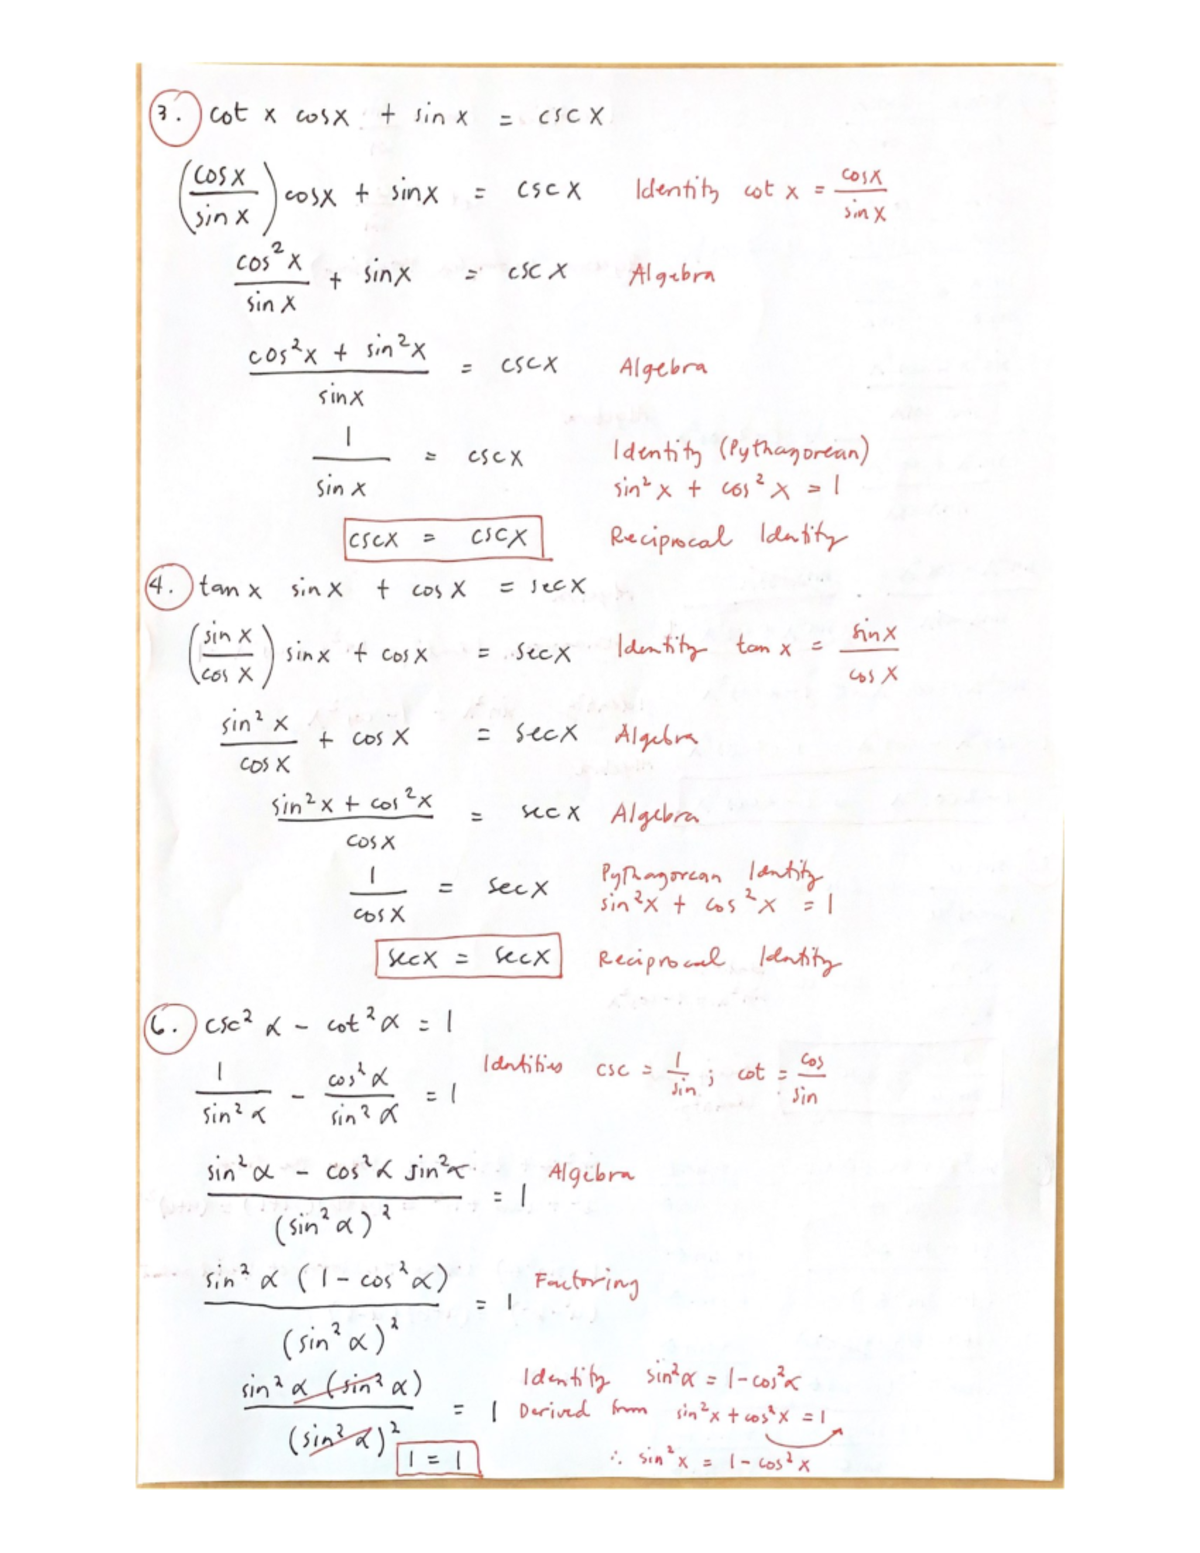 3. cot x cosx + sin x = csc x
(cosx / sin x) cosx + sinx = csc x Identity cot x = cosx / sin x
cos²x / sin x + sinx = csc x Algebra
cos²x + sin²x / sinx = cscx Algebra
1 / sin x = cscx Identity (Pythagorean)
sin²x + cos²x = 1
cscx = cscx Reciprocal Identity
4. tan x sin x + cos x = secx
(sin x / cos x) sinx + cosx = secx Identity tan x = sinx / cos x
sin²x / cosx + cos x = secx Algebra
sin²x + cos²x / cosx = sec x Algebra
1 / cosx = secx Pythagorean Identity
sin²x + cos²x = 1
secx = secx Reciprocal Identity
6. csc²α - cot²α = 1
1 / sin²α - cos²α / sin²α = 1 Identities csc = 1 / sin ; cot = cos / sin
sin²α - cos²α sin²α / (sin²α)² = 1 Algebra
sin²α (1 - cos²α) / (sin²α)² = 1 Factoring
sin²α (sin²α) / (sin²α)² = 1 Identity sin²α = 1-cos²α
Derived from sin²x + cos²x = 1
1 = 1 ∴ sin²x = 1-cos²x